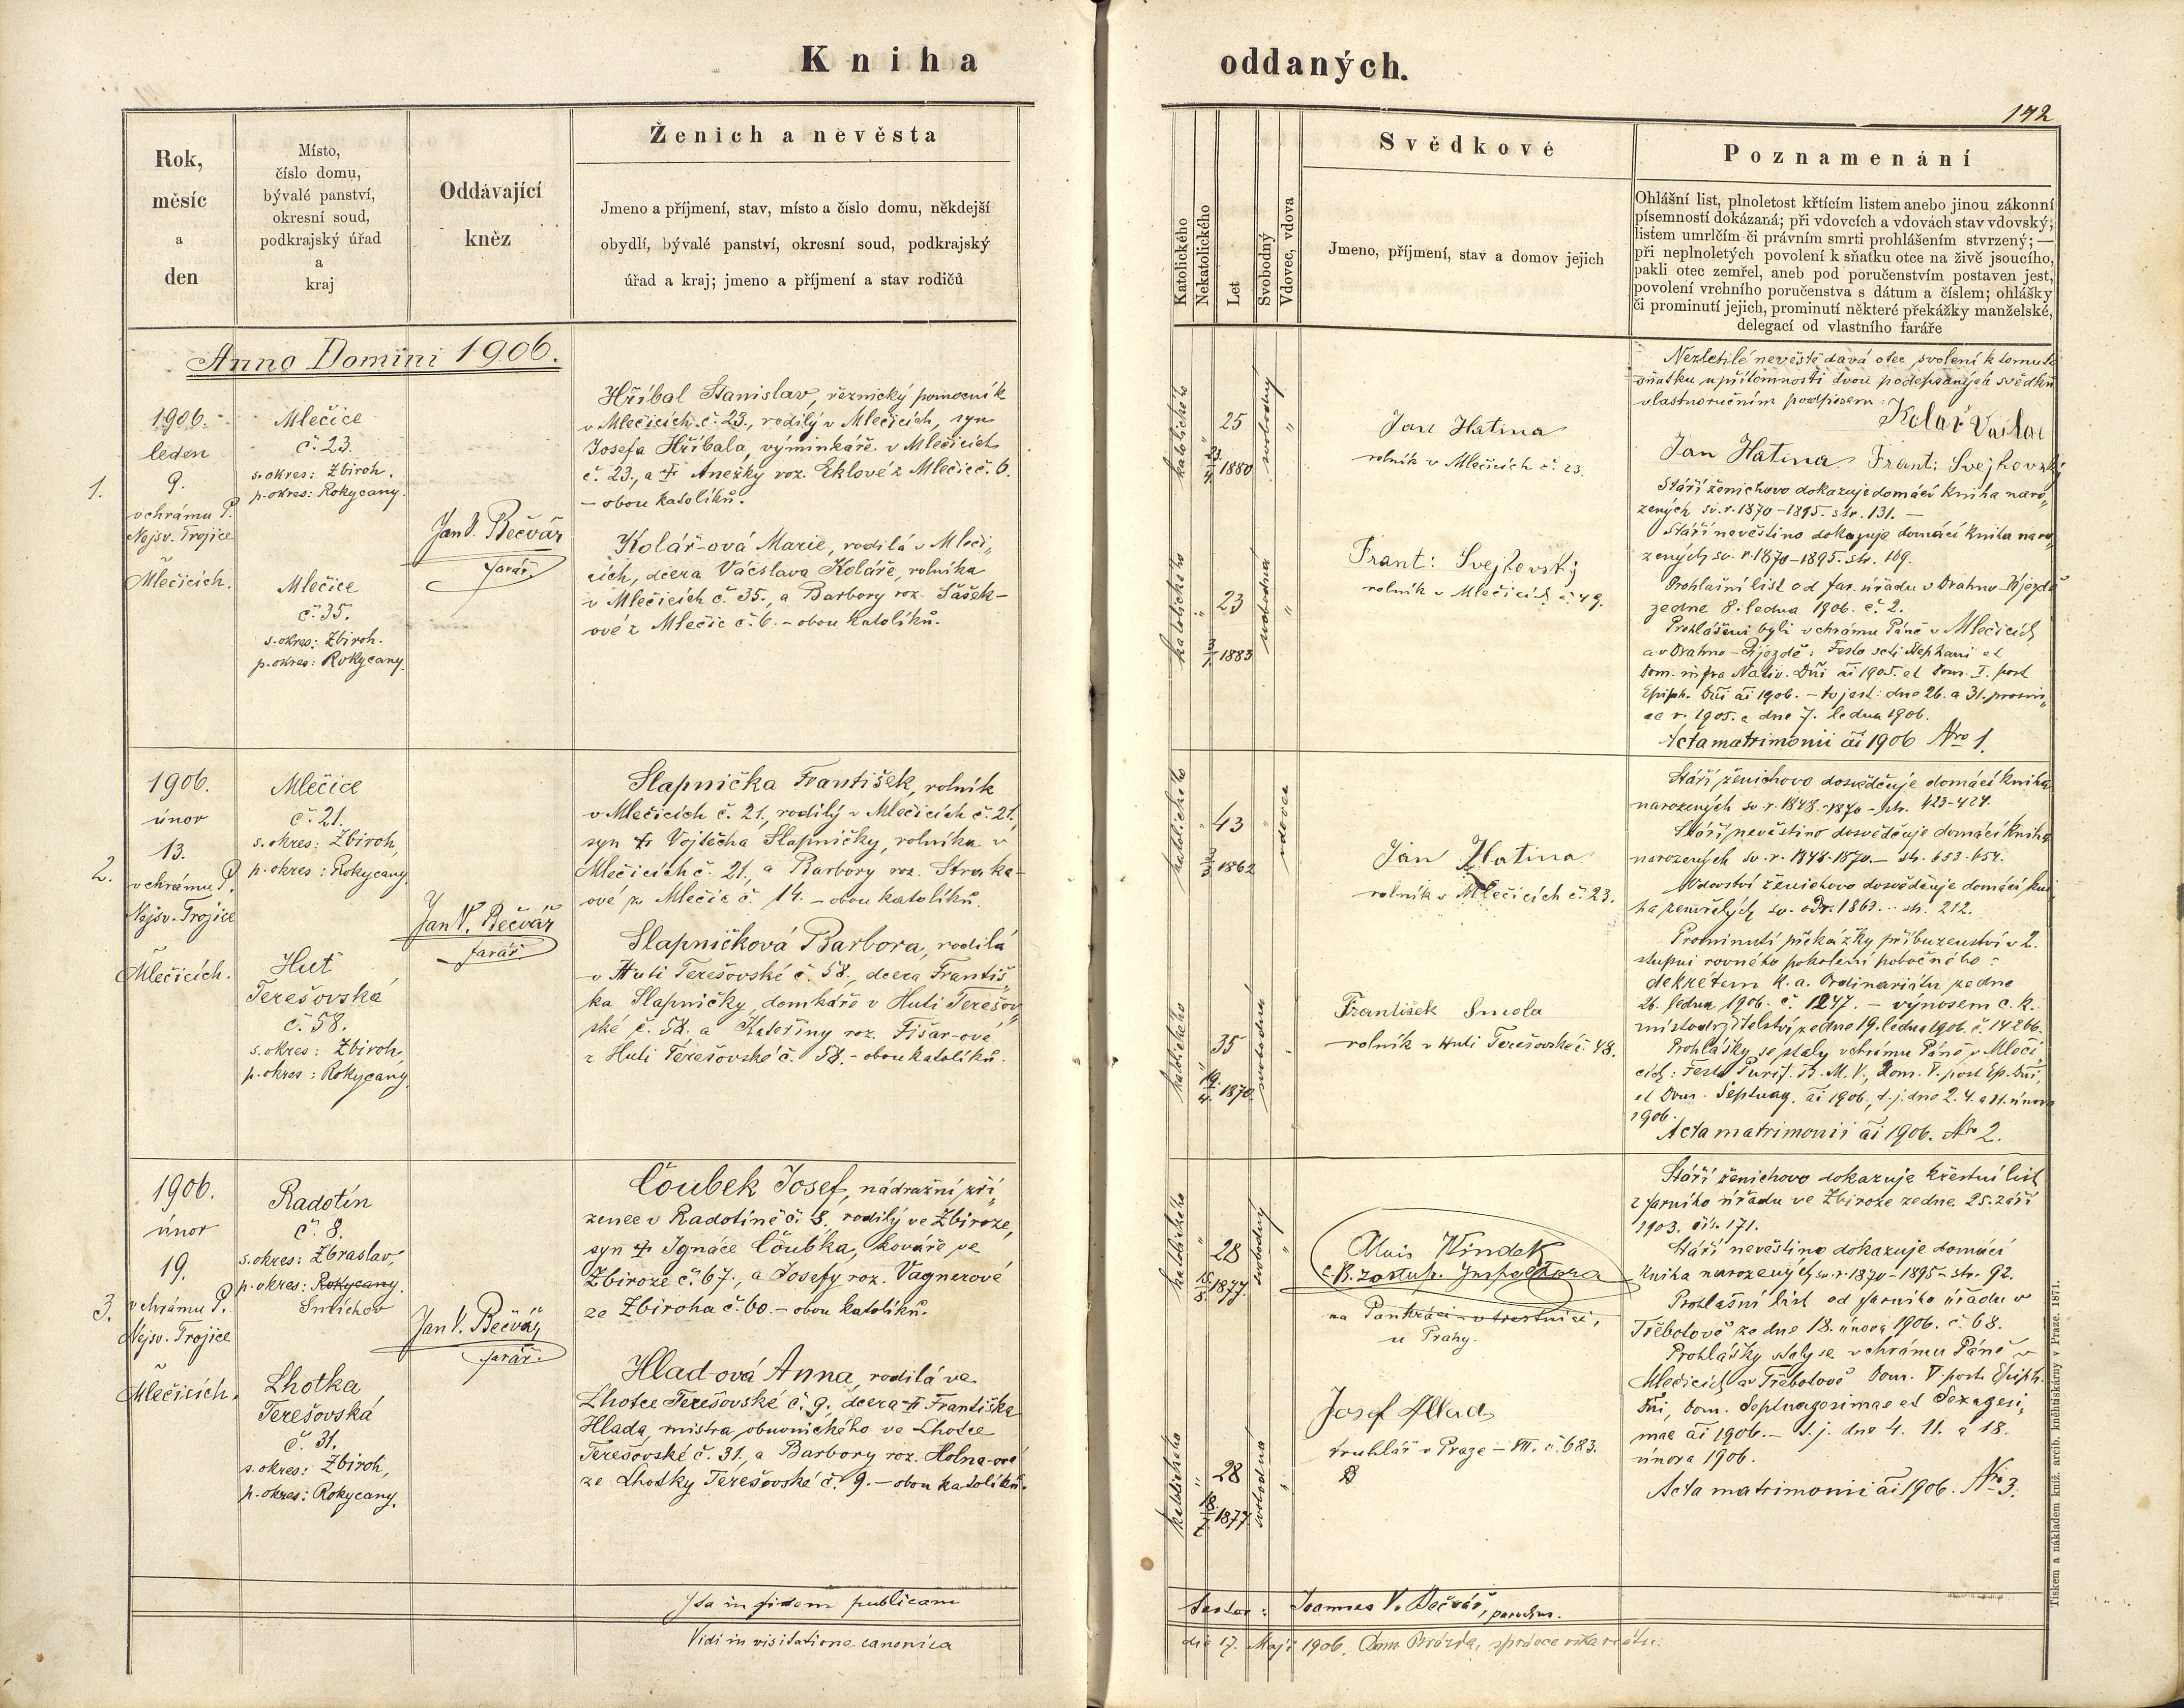 Kniha oddaných.
172
Rok,
měsíc
a
den
Místo,
číslo domu,
bývalé panství,
okresní soud,
podkrajský úřad
a
kraj
Oddávající
kněz
Ženich a nevěsta
Jmeno a příjmení, stav, místo a číslo domu, někdejší
obydlí, bývalé panství, okresní soud, podkrajský
úřad a kraj; jmeno a příjmení a stav rodičů
Katolického
Nekatolického
Let
Svobodný
Vdovec, vdova
Svědkové
Jmeno, příjmení, stav a domov jejich
Poznamenání
Ohlášní list, plnoletost křtícím listem anebo jinou zákonní
písemností dokázaná; při vdovcích a vdovách stav vdovský;
listem umrlčím či právním smrti prohlášením stvrzený; —
při neplnoletých povolení k sňatku otce na živě jsoucího,
pakli otec zemřel, aneb pod poručenstvím postaven jest,
povolení vrchního poručenstva s dátum a číslem; ohlášky
či prominutí jejich, prominutí některé překážky manželské,
delegací od vlastního faráře
Anno Domini 1906.
1.
1906.
leden
9.
v chrámu P.
Nejsv. Trojice
v
Mlečicích.
Mlečice
č. 23.
s. okres: Zbiroh.
p. okres: Rokycany.
Mlečice
č. 35.
s. okres: Zbiroh.
p. okres: Rokycany.
Jan V. Bečvář
farář.
Hříbal Stanislav, řeznický pomocník
v Mlečicích č. 23., rodilý v Mlečicích, syn
Josefa Hříbala, výminkáře v Mlečicích
č. 23., a † Anežky roz. Eklové z Mlečic č. 6.
– obou katolíků.
Kolář-ová Marie, rodilá v Mleči„
cích, dcera Václava Koláře, rolníka
v Mlečicích č. 35., a Barbory roz. Sášek-
ové z Mlečic č. 6. – obou katolíků.
katolického
25
23/4 1880
svobodný
katolického
23
3/1 1883
svobodná
Jan Hatina
rolník v Mlečicích č. 23.
Frant: Svejkovský
rolník v Mlečicích č. 49.
Nezletilé nevěstě dává otec svolení k tomuto
sňatku u přítomnosti dvou podepsaných svědků
vlastnoručním podpisem:
Kolař Vaclav
Jan Hatina Frant: Svejkovský
Stáří ženichovo dokazuje domácí kniha naro„
zených sv. r. 1870–1895. str. 131. –
Stáří nevěstino dokazuje domácí kniha naro„
zených sv. r. 1870–1895. str. 169.
Prohlašní list od far. úřadu v Drahno-Újezdě
ze dne 8. ledna 1906. č. 2.
Prohlášeni byli v chrámu Páně v Mlečicích
a v Drahno-Újezdě: Festo scti Stephani et
Dom. infra Nativ. Dñi ãi 1905. et Dom. I. post
Epiph. Dñi ãi 1906. – to jest: dne 26. a 31. prosin„
ce r. 1905. a dne 7. ledna 1906.
Acta matrimonii ãi 1906 Nro 1.
2.
1906.
únor
13.
v chrámu P.
Nejsv. Trojice
v
Mlečicích.
Mlečice
č. 21.
s. okres: Zbiroh,
p. okres: Rokycany.
Huť
Terešovská
č. 58.
s. okres: Zbiroh,
p. okres: Rokycany.
Jan V. Bečvář
farář.
Slapnička František, rolník
v Mlečicích č. 21, rodilý v Mlečicích č. 21,
syn † Vojtěcha Slapničky, rolníka v
Mlečicích č. 21., a Barbory roz. Straka-
ové z Mlečic č. 14. – obou katolíků.
Slapničková Barbora, rodilá
v Huti Terešovské č. 58., dcera Františ„
ka Slapničky, domkáře v Huti Terešov„
ské č. 58. a Kateřiny roz. Fišar-ové
z Huti Terešovské č. 58. – obou katolíků.
katolického
43
3/3 1862
vdovec
katolického
35
19/4 1870
svobodná
Jan Hatina
rolník v Mlečicích č. 23.
František Smola
rolník v Huti Terešovské č. 48.
Stáří ženichovo dosvědčuje domácí kniha
narozených sv. r. 1848–1870 – str. 423–424.
Stáří nevěstino dosvědčuje domácí kniha
narozených sv. r. 1848–1870. – str. 653–654.
Vdovství ženichovo dosvědčuje domácí kni
ha zemřelých sv. od r. 1863. – str. 212.
Prominutí překážky příbuzenství v 2.
stupni rovného pokolení pobočného:
dekretem k. a. Ordinariátu ze dne
26. ledna 1906. č. 1247. – výnosem c. k.
místodržitelství ze dne 19. ledna 1906. č. 14266.
Prohlášky se staly v chrámu Páně v Mleči„
cích: Festo Purif. B. M. V., Dom. V. post Ep. Dñi,
et Dom. Septuag. ãi 1906., t. j. dne 2. 4. a 11. února
1906.
Acta matrimonii ãi 1906. Nro 2.
3.
1906.
únor
19.
v chrámu P.
Nejsv. Trojice
v
Mlečicích.
Radotín
č. 8.
s. okres: Zbraslav,
p. okres: Rokycany.
Smíchov
Lhotka
Terešovská
č. 31.
s. okres: Zbiroh,
p. okres: Rokycany.
Jan V. Bečvář
farář.
Čoubek Josef, nádražní zří„
zenec v Radotíně č. 8, rodilý ve Zbiroze,
syn † Ignáce Čoubka, kováře ve
Zbiroze č. 67., a Josefy roz. Vagnerové
ze Zbiroha č. 60. – obou katolíků.
Hlad-ová Anna, rodilá ve
Lhotce Terešovské č. 9., dcera † Františka
Hlada, mistra obuvnického ve Lhotce
Terešovské č. 31, a Barbory roz. Holna-ové
ze Lhotky Terešovské č. 9. – obou katolíků.
katolického
28
15/8 1877
svobodný
katolického
28
18/7 1877
svobodná
Alois Kindek
c. k. zástup. Inspektora
na Pankráci – v trestnici,
u Prahy.
Josef Hlad
truhlář v Praze – VII. č. 683.
Stáří ženichovo dokazuje křestní list
z farního úřadu ve Zbiroze ze dne 25. září
1903. čís. 171.
Stáří nevěstino dokazuje domácí
kniha narozených sv. r. 1870–1895 – str. 92.
Prohlašní list od farního úřadu v
Třebotově ze dne 18. února 1906. č. 68.
Prohlášky staly se v chrámu Páně v
Mlečicích a v Třebotově Dom. V. post Epiph.
Dñi, Dom. Septuagesimae et Sexagesi„
mae ãi 1906. – t. j. dne 4. 11. a 18.
února 1906.
Acta matrimonii ãi 1906. Nro 3.
Ita in fidem publicam
testor: Joannes V. Bečvář, parochus.
Vidi in visitatione canonica
die 17. Maji 1906. Dom. Brázda, správce vikariátu.
Tiskem a nákladem kníž. arcib. kněhtiskárny v Praze. 1871.